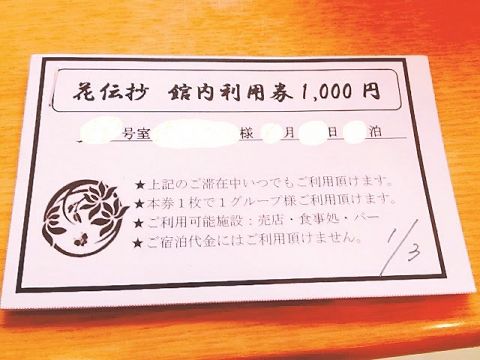 花伝抄 館内利用券1,000円
号室 様 月 日 泊
★上記のご滞在中いつでもご利用頂けます。
★本券1枚で1グループ様ご利用頂けます。
★ご利用可能施設：売店・食事処・バー
★ご宿泊代金にはご利用頂けません。
1/3